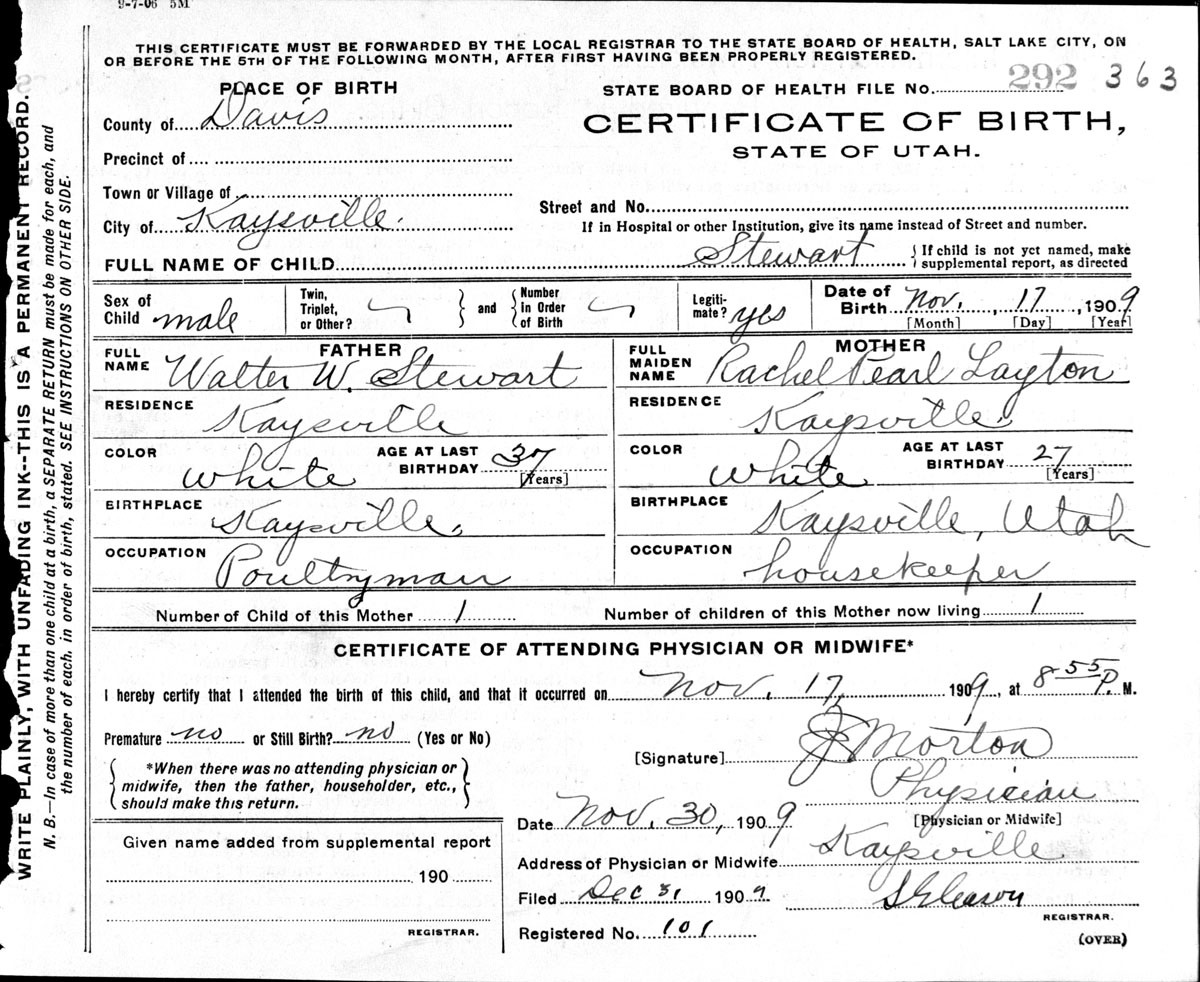 9-7-06 5M
THIS CERTIFICATE MUST BE FORWARDED BY THE LOCAL REGISTRAR TO THE STATE BOARD OF HEALTH, SALT LAKE CITY, ON
OR BEFORE THE 5TH OF THE FOLLOWING MONTH, AFTER FIRST HAVING BEEN PROPERLY REGISTERED.
PLACE OF BIRTH
County of Davis
Precinct of
Town or Village of
City of Kaysville.
STATE BOARD OF HEALTH FILE No. 292 363
CERTIFICATE OF BIRTH,
STATE OF UTAH.
Street and No.
If in Hospital or other Institution, give its name instead of Street and number.
FULL NAME OF CHILD Stewart { If child is not yet named, make
supplemental report, as directed
Sex of Child male
Twin, Triplet, or Other? } and { Number In Order of Birth
Legiti-mate? yes
Date of Birth Nov, 17, 1909
[Month] [Day] [Year]
FATHER
FULL NAME Walter W. Stewart
RESIDENCE Kaysville
COLOR White AGE AT LAST BIRTHDAY 37 [Years]
BIRTHPLACE Kaysville,
OCCUPATION Poultryman
MOTHER
FULL MAIDEN NAME Rachel Pearl Layton
RESIDENCE Kaysville.
COLOR White AGE AT LAST BIRTHDAY 27 [Years]
BIRTHPLACE Kaysville, Utah
OCCUPATION housekeeper
Number of Child of this Mother 1 Number of children of this Mother now living 1
CERTIFICATE OF ATTENDING PHYSICIAN OR MIDWIFE*
I hereby certify that I attended the birth of this child, and that it occurred on Nov, 17, 1909, at 8 55 P. M.
Premature no or Still Birth? no (Yes or No)
{ *When there was no attending physician or
midwife, then the father, householder, etc.,
should make this return. }
[Signature] Morton
Physician
[Physician or Midwife]
Date Nov, 30, 1909
Address of Physician or Midwife Kaysville
Filed Dec 31 1909 S Gleason
REGISTRAR.
Registered No. 101
(OVER)
Given name added from supplemental report
190
REGISTRAR.
WRITE PLAINLY, WITH UNFADING INK--THIS IS A PERMANENT RECORD.
N. B.—In case of more than one child at a birth, a SEPARATE RETURN must be made for each, and
the number of each, in order of birth, stated. SEE INSTRUCTIONS ON OTHER SIDE.